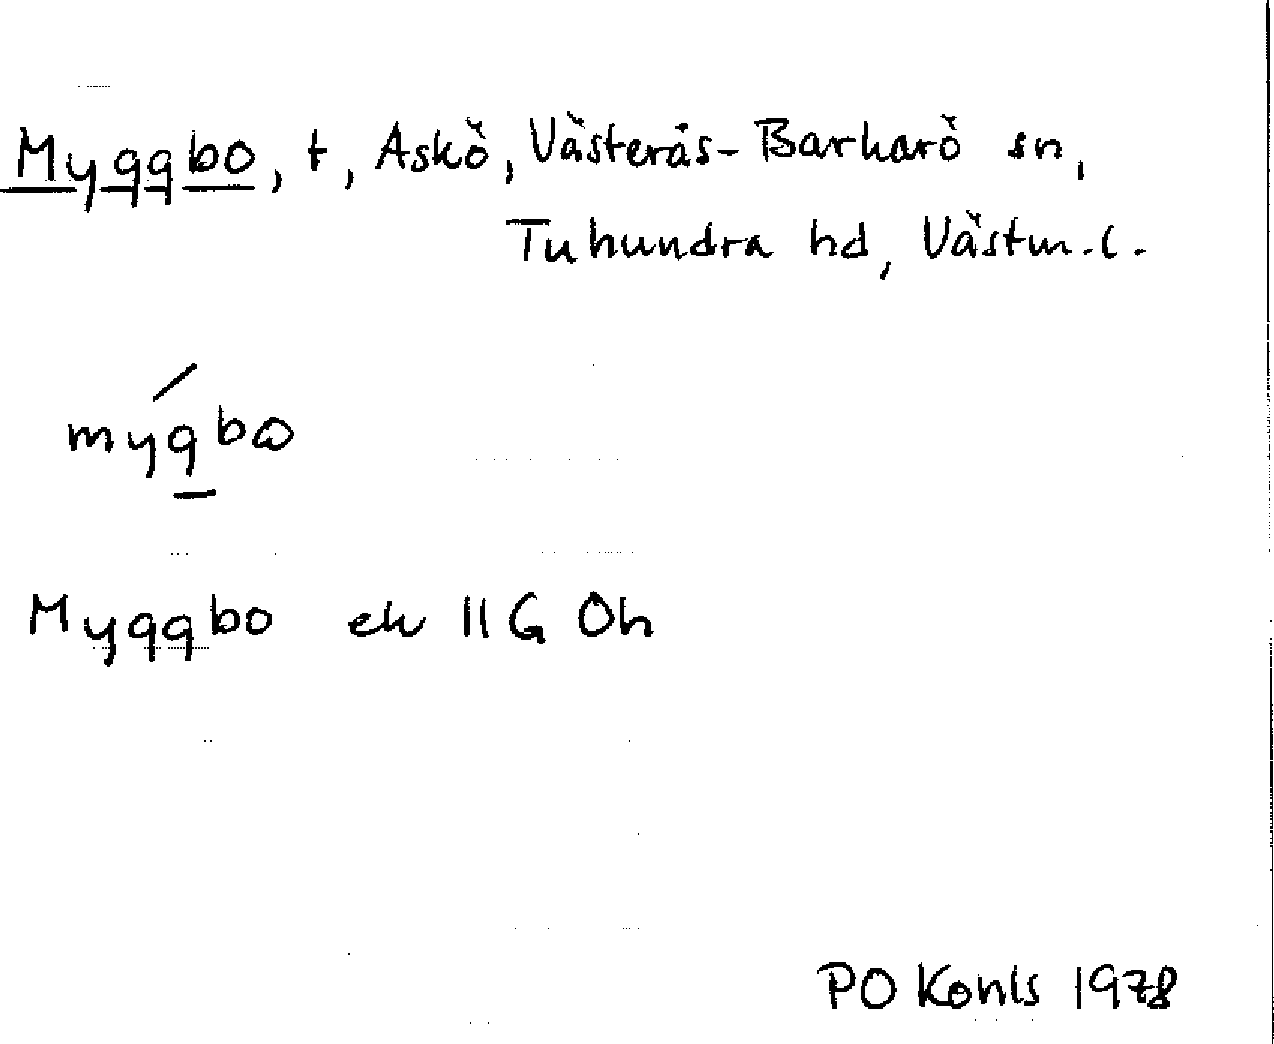 Myggbo, t, Askö, Västerås-Barkarö sn,
Tuhundra hd, Västm. l.
mýgbo
Myggbo ek 11G 0h
PO Konls 1978